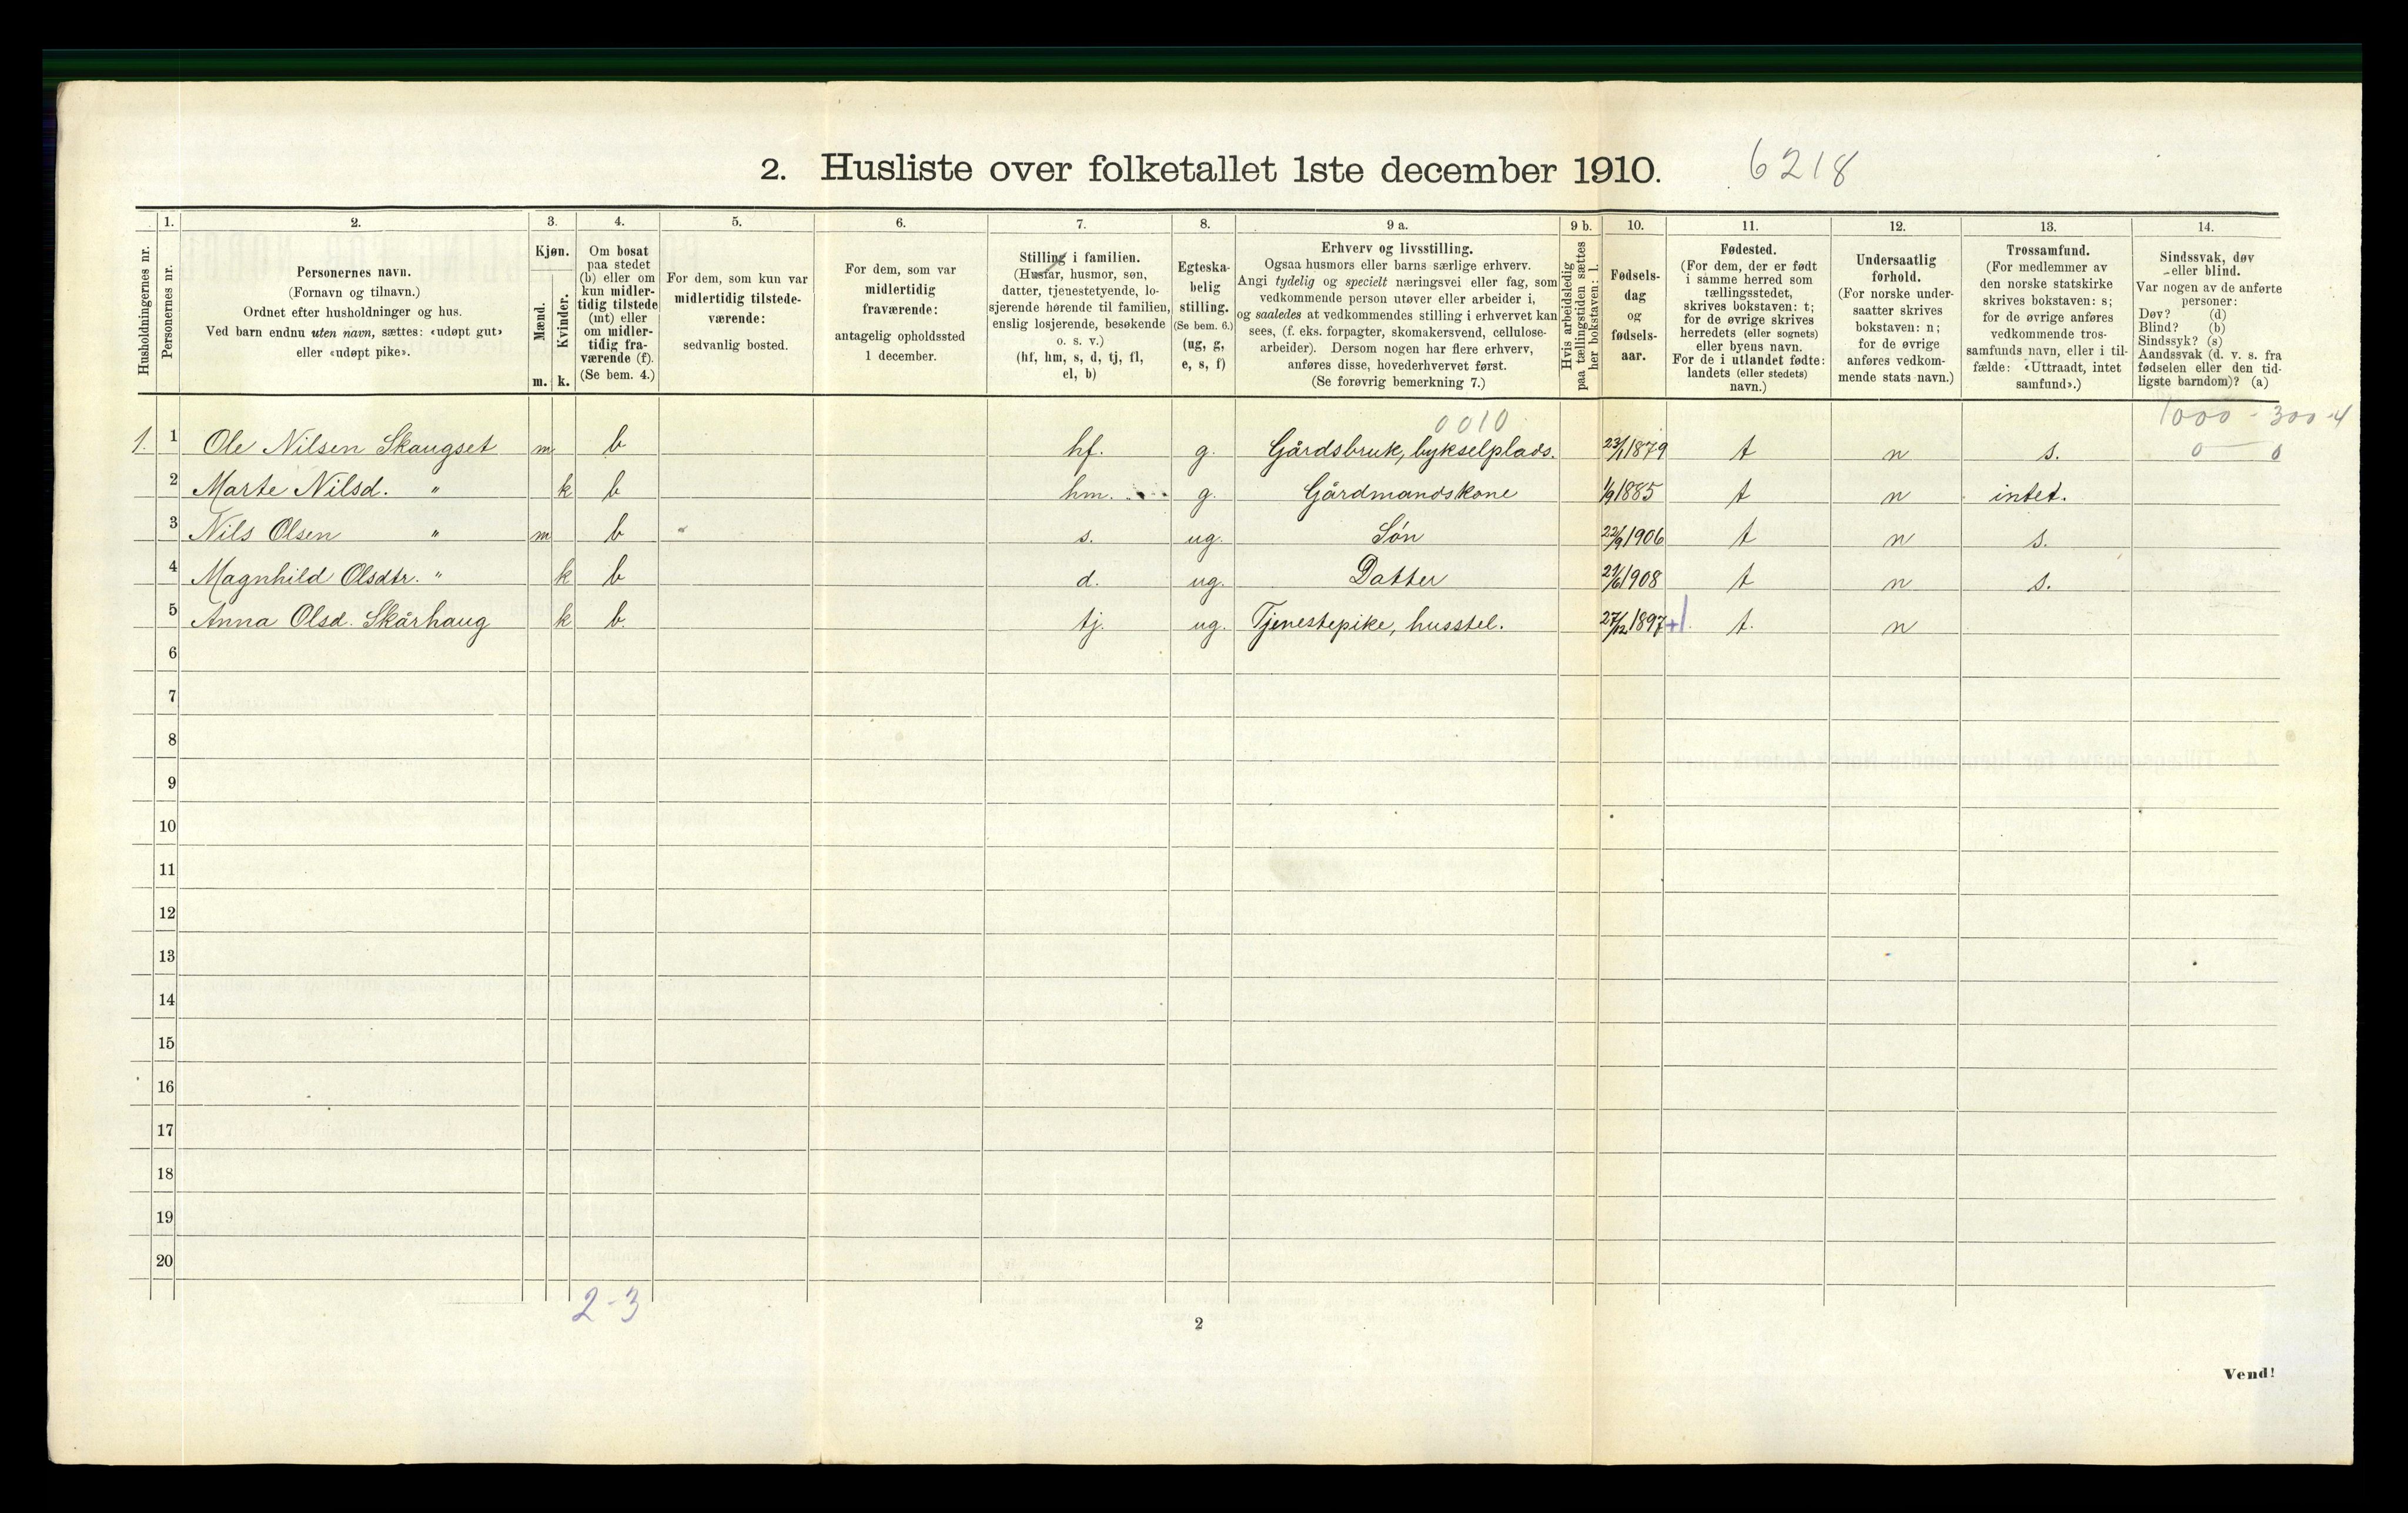 2. Husliste over folketallet 1ste december 1910. 6218
Husholdningernes nr.
1.
Personernes nr.
2.
Personernes navn.
(Fornavn og tilnavn.)
Ordnet efter husholdninger og hus.
Ved barn endnu uten navn, sættes: «udøpt gut»
eller «udøpt pike».
3.
Kjøn.
Mænd.
Kvinder.
m. k.
4.
Om bosat
paa stedet
(b) eller om
kun midler-
tidig tilstede
(mt) eller
om midler-
tidig fra-
værende (f).
(Se bem. 4.)
5.
For dem, som kun var
midlertidig tilstede-
værende:
sedvanlig bosted.
6.
For dem, som var
midlertidig
fraværende:
antagelig opholdssted
1 december.
7.
Stilling i familien.
(Husfar, husmor, søn,
datter, tjenestetyende, lo-
sjerende hørende til familien,
enslig losjerende, besøkende
o. s. v.)
(hf, hm, s, d, tj, fl,
el, b)
8.
Egteska-
belig
stilling.
(Se bem. 6.)
(ug, g,
e, s, f)
9 a.
Erhverv og livsstilling.
Ogsaa husmors eller barns særlige erhverv.
Angi tydelig og specielt næringsvei eller fag, som
vedkommende person utøver eller arbeider i,
og saaledes at vedkommendes stilling i erhvervet kan
sees, (f. eks. forpagter, skomakersvend, cellulose-
arbeider). Dersom nogen har flere erhverv,
anføres disse, hovederhvervet først.
(Se forøvrig bemerkning 7.)
9 b.
Hvis arbeidsledig
paa tællingstiden sættes
her bokstaven: l.
10.
Fødsels-
dag
og
fødsels-
aar.
11.
Fødested.
(For dem, der er født
i samme herred som
tællingsstedet,
skrives bokstaven: t;
for de øvrige skrives
herredets (eller sognets)
eller byens navn.
For de i utlandet fødte:
landets (eller stedets)
navn.)
12.
Undersaatlig
forhold.
(For norske under-
saatter skrives
bokstaven: n;
for de øvrige
anføres vedkom-
mende stats navn.)
13.
Trossamfund.
(For medlemmer av
den norske statskirke
skrives bokstaven: s;
for de øvrige anføres
vedkommende tros-
samfunds navn, eller i til-
fælde: «Uttraadt, intet
samfund».)
14.
Sindssvak, døv
eller blind.
Var nogen av de anførte
personer:
Døv? (d)
Blind? (b)
Sindssyk? (s)
Aandssvak (d. v. s. fra
fødselen eller den tid-
ligste barndom)? (a)
0010 1000 - 300 - 4
1. 1 Ole Nilsen Skaugset m b hf. g. Gårdsbruk, bykselplads. 23/1 1879 t n s. 0 0
2 Marte Nilsd. " k b hm. g. Gårdmandskone 1/9 1885 t n intet.
3 Nils Olsen " m b s. ug. Søn 22/9 1906 t n s.
4 Magnhild Olsdtr. " k b d. ug. Datter 21/6 1908 t n s.
5 Anna Olsd. Skårhaug k b. tj. ug. Tjenestepike, husstel. 27/12 1897 +1. t. n
6
7
8
9
10
11
12
13
14
15
16
17
18
19
20
2-3
2
Vend!